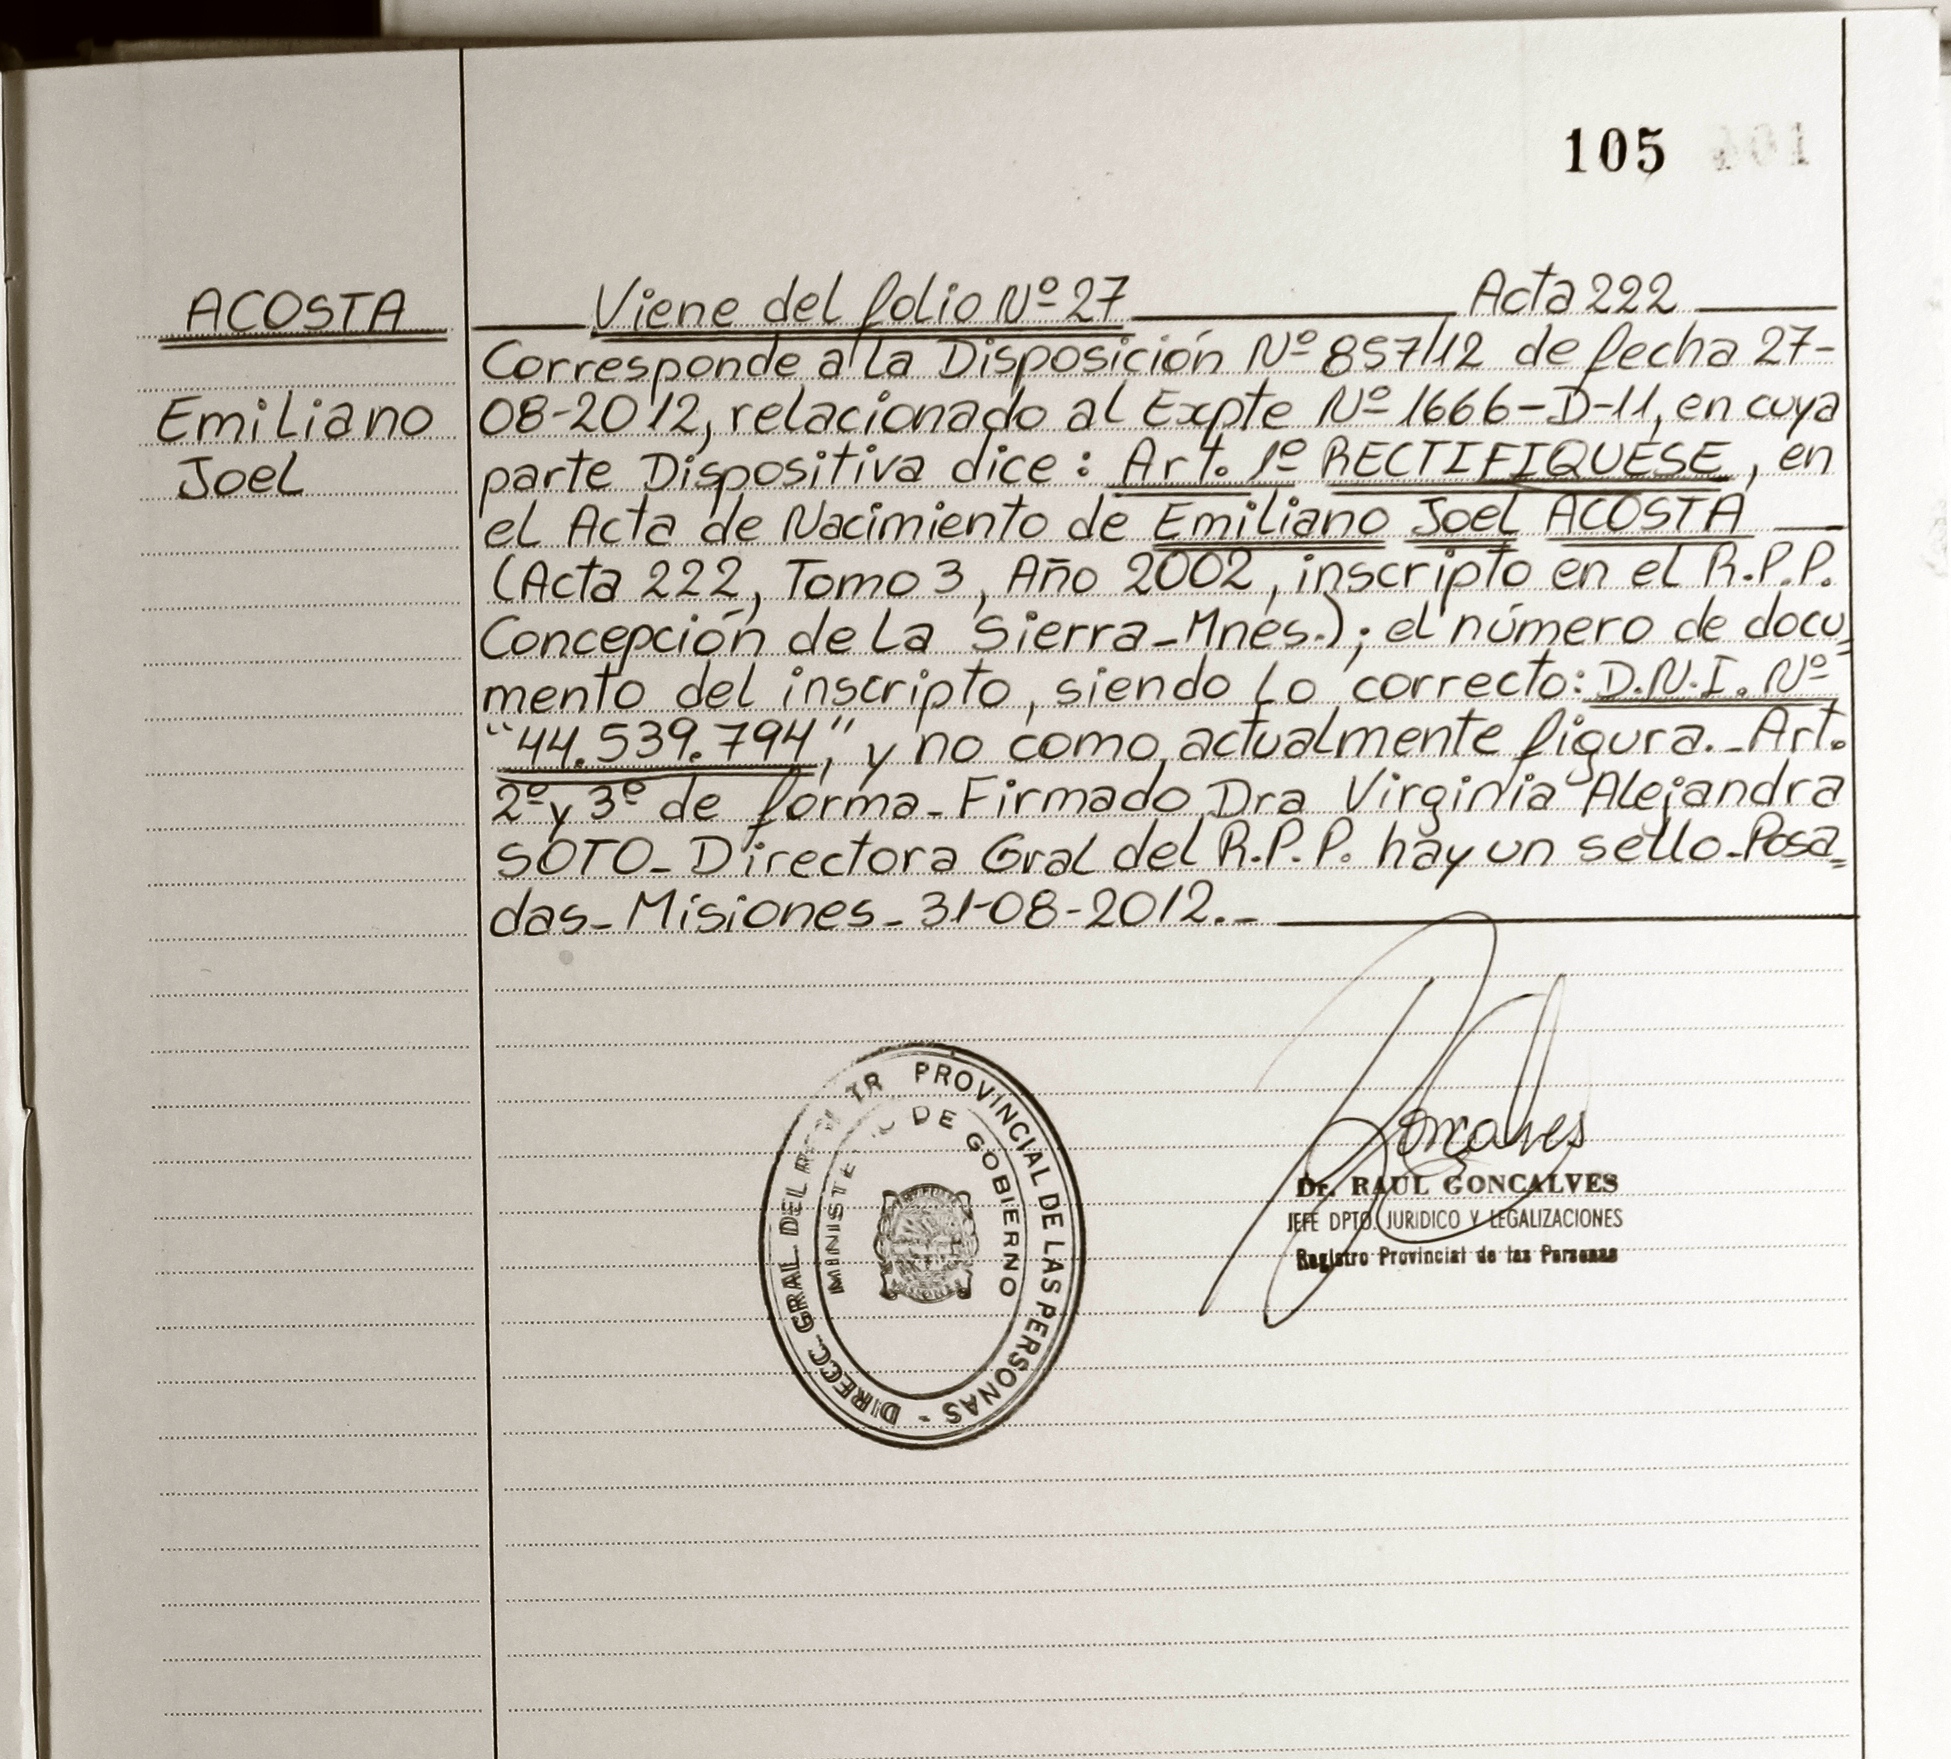 105 401
ACOSTA
Emiliano
Joel
Viene del folio Nº 27 Acta 222
Corresponde a la Disposición Nº 857/12 de fecha 27-
08-2012, relacionado al Expte Nº 1666-D-11, en cuya
parte Dispositiva dice: Art. 1º RECTIFIQUESE, en
el Acta de Nacimiento de Emiliano Joel ACOSTA
(Acta 222, Tomo 3, Año 2002, inscripto en el R.P.P.
Concepción de La Sierra-Mnes.); el número de docu
mento del inscripto, siendo Lo correcto: D.N.I. Nº
"44.539.794", y no como actualmente figura.- Art.
2º y 3º de forma- Firmado Dra Virginia Alejandra
SOTO- Directora Gral del R.P.P. hay un sello-Posa
das- Misiones- 31-08-2012.-
DIRECC. GRAL DEL PROVINCIAL DE LAS PERSONAS -
DE GOBIERNO
Goncalves
Dr. RAUL GONCALVES
JEFE DPTO. JURIDICO Y LEGALIZACIONES
Registro Provincial de las Personas